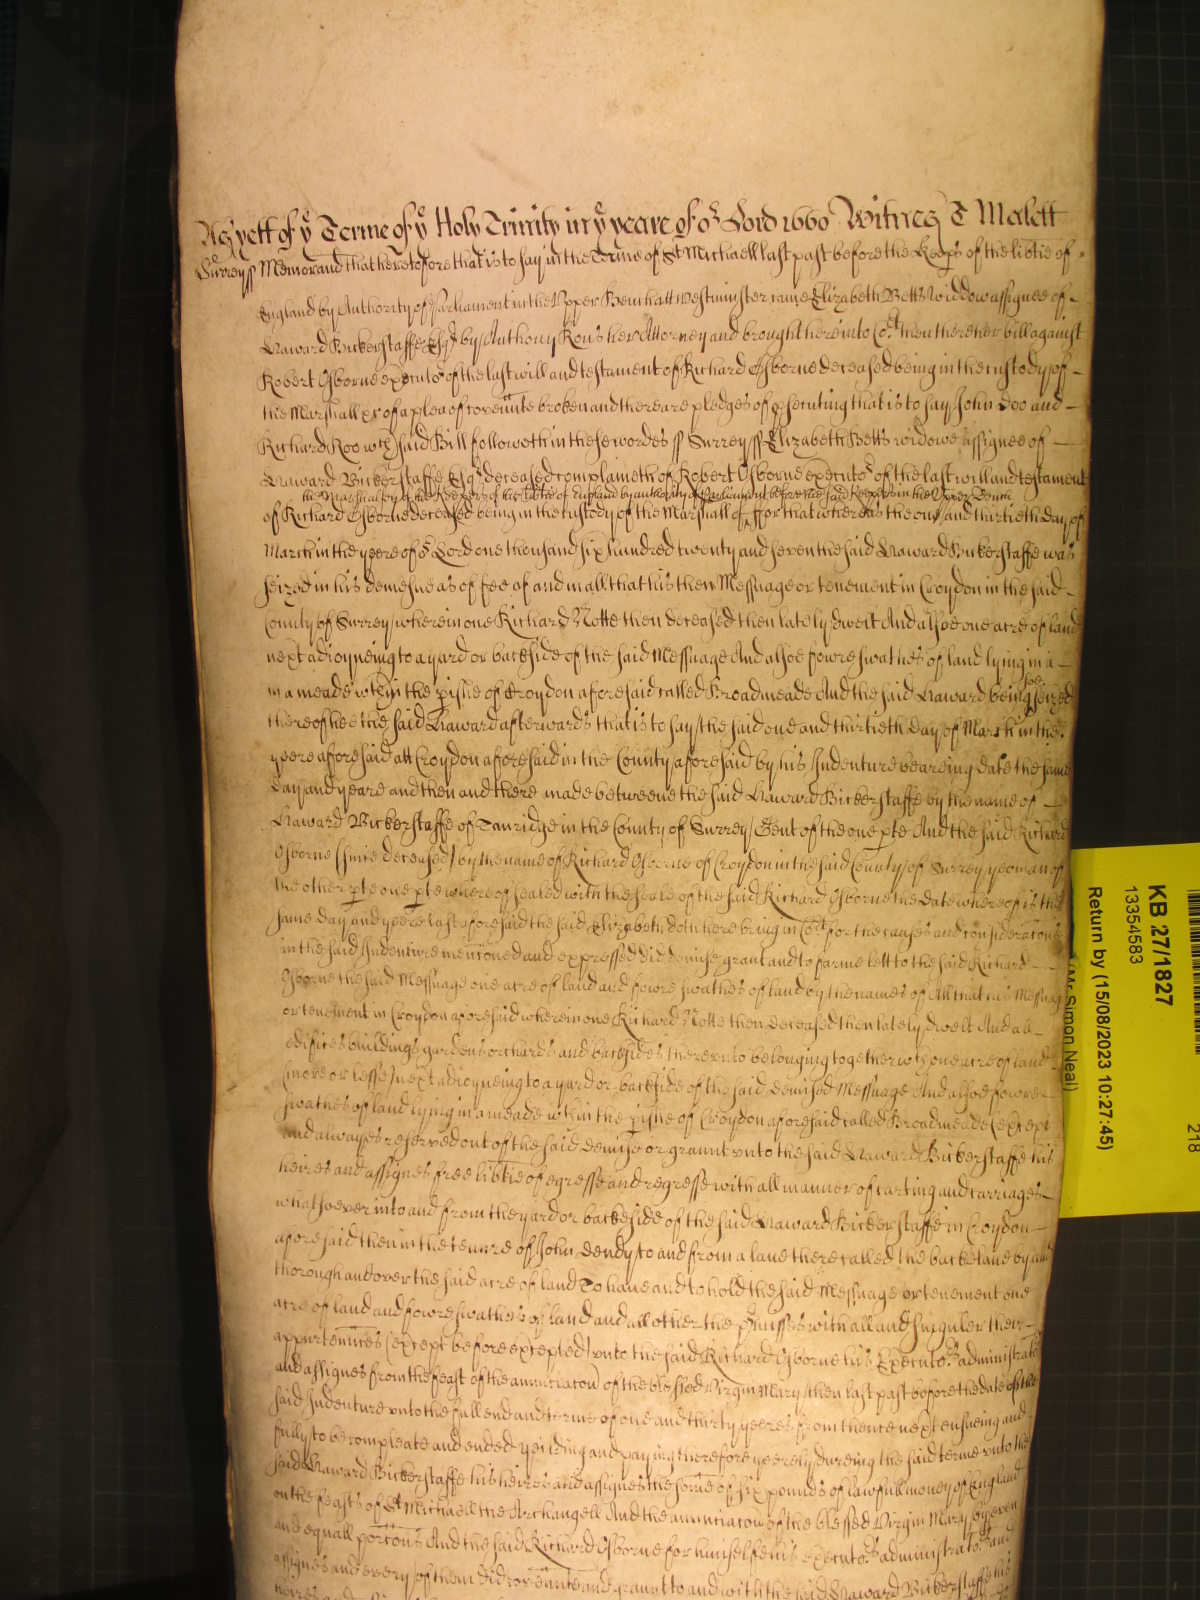 As yett of ye Terme of ye Holy Trinity in ye yeare of or Lord 1660 Witnes T Malett
Surrey ss Memorand that heretofore that is to say in the Terme of St Michaell last past before the Keeps of the libtie of
England by Authority of Parliament in the Upper Bench att Westminster came Elizabeth Betts widdow assignee of
Haward Bickerstaffe Esqr by Anthony Rous her Attorney and brought here into Cort then there her bill against
Robert Osborne executor of the last will and testament of Richard Osborne deceased being in the custody of
the Marshall &c of a plea of covente broken and there are pledges of psecuting that is to say John Doo and
Richard Roo wch said Bill followeth in these wordes ss Surrey ss Elizabeth Betts widowe assignee of
Haward Bickerstaffe Esqr deceased complaineth of Robert Osborne executor of the last will and testament
the Marshalsey of the Keepers of the libtie of England by authority of Parliament before the said Keepers in the Upper Bench
of Richard Osborne deceased being in the custody of the Marshall of ffor that whereas the one and thirtieth day of
March in the yeere of or Lord one thousand six hundred twenty and seven the said Haward Bickerstaffe was
seized in his demesne as of fee of and in all that his then Messuage or tenement in Croydon in the said
County of Surrey wherein one Richard Notte then deceased then lately dwelt And alsoe one acre of land
next adioyneing to a yard or backside of the said Messuage And alsoe fowre swathes of land lying in a
in a meade wthin the pishe of Croydon aforesaid called Broadmeade And the said Haward being soe seized
thereof hee the said Haward afterwards that is to say the said one and thirtieth day of March in the
yeere aforesaid att Croydon aforesaid in the County aforesaid by his Indenture beareing date the same
day and yeare and then and there made betweene the said Haward Bickerstaffe by the name of
Haward Bickerstaffe of Tanridge in the County of Surrey Gent of the one pte And the said Richard
Osborne (since deceased) by the name of Richard Osborne of Croydon in the said County of Surrey yeoman of
the other pte one pte whereof sealed with the seale of the said Richard Osborne the date whereof is the
same day and yeere last aforesaid the said Elizabeth doth here bring in Cort for the causes and consideracons
in the said Indenture menconed and expressed did demise grant and to farme lett to the said Richard
Osborne the said Messuage one acre of land and fowre swathes of land by the names of All that his Messuag
or tenement in Croydon aforesaid wherein one Richard Notte then deceased then lately dwelt And all
edifices buildings gardens orchards and backsides thereunto belonging together wth one acre of land
(more or lesse) next adioyneing to a yard or backside of the said demised Messuage And alsoe fowre
swathes of land lying in a meade wthin the pishe of Croydon aforesaid called Broadmeade (except
and alwayes reserved out of the said demise or graunt unto the said Haward Bickerstaffe his
heires and assignes free libtie of egresse and regresse with all manner of carting and carriages
whatsoever into and from the yard or backside of the said Haward Bickerstaffe in Croydon
aforesaid then in the tenure of John Dendy to and from a lane there called the backe lane by and
thorough and over the said acre of land To have and to hold the said Messuage or tenement one
acre of land and fowre swathes of land and all other the pmisses with all and singuler their
appurtennces (except before excepted) unto the said Richard Osborne his Executors administrators
and assignes from the feast of the annunciacon of the blessed Virgin Mary then last past before the date of the
said Indenture unto the full end and terme of one and thirty yeeres from thence next ensueing and
fully to be compleate and ended yeilding and paying therefore yeerely dureing the said terme unto the
said Haward Bickerstaffe his heires and assignes the some of six pounds of lawfull money of England
on the feasts of St Michaell the Archangell And the annunciacon of the blessed Virgin Mary by even
and equall porcons And the said Richard Osborne for himselfe his executors administrators and
assignes and every of them did covente and graunt to and with the said Haward Bickerstaffe his
KB 27/1827
13354583
Return by (15/08/2023 10:27:45)
(Mr Simon Neal)
218